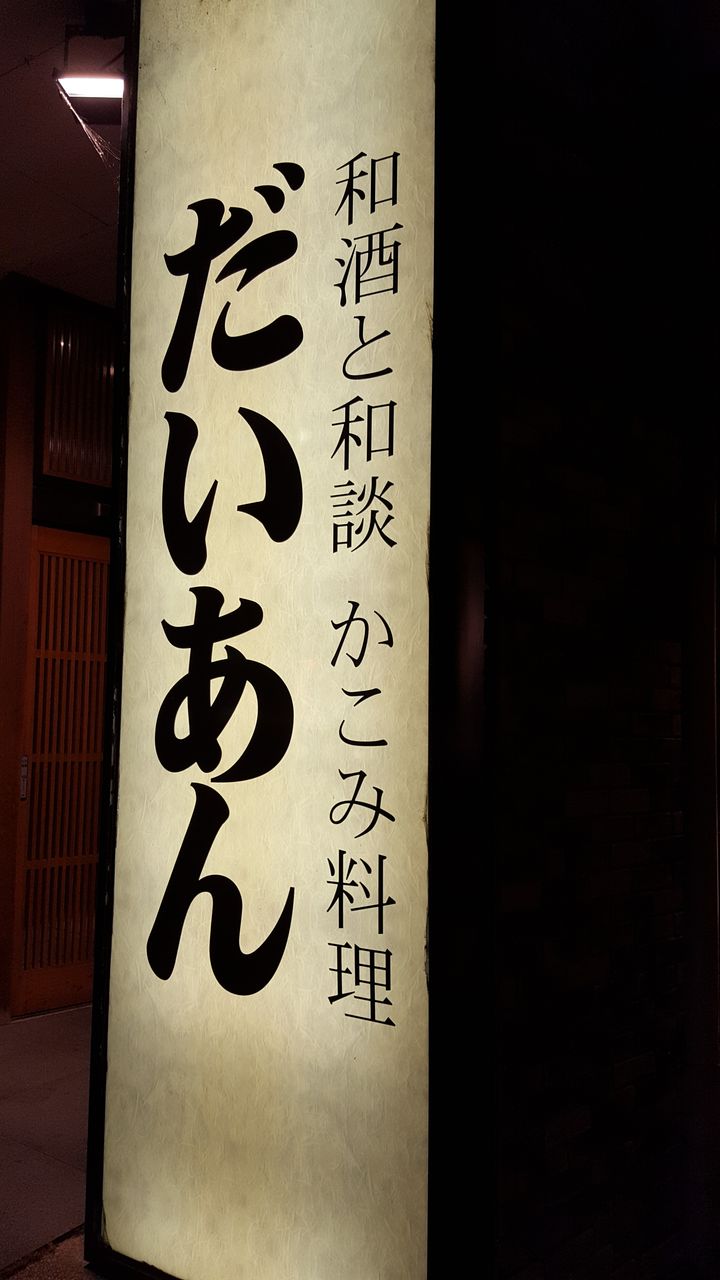 和酒と和談 かこみ料理
だいあん